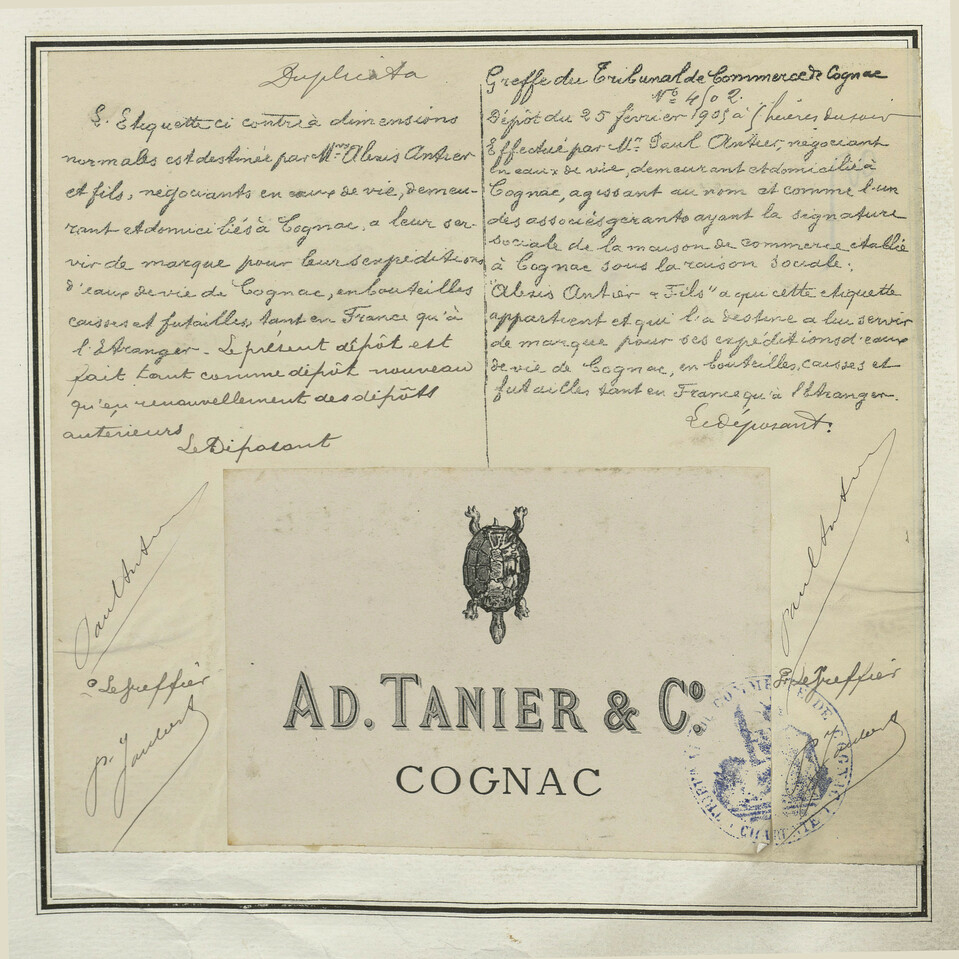 Duplicata
L'Etiquette ci contre à dimensions
normales est destinée par Mrs Alexis Antier
et fils, négociants en eaux de vie, demeu-
rant et domiciliés à Cognac, a leur ser-
vir de marque pour leurs expéditions
d'eaux de vie de Cognac, en bouteilles
caisses et futailles, tant en France qu'à
l'Etranger. Le présent dépôt est
fait tant comme dépôt nouveau
qu'en renouvellement des dépôts
antérieurs
Le Déposant
Paul Antier
Le Greffier
P. Jaubert
Greffe du Tribunal de Commerce de Cognac
No 4502.
Dépôt du 25 février 1905 à 5 heures du soir
Effectué par Mr Paul Antier, négociant
en eaux de vie, demeurant et domicilié à
Cognac, agissant au nom et comme l'un
des associés gérants ayant la signature
sociale de la maison de commerce établie
à Cognac sous la raison sociale:
"Alexis Antier & Fils" a qui cette etiquette
appartient et qui l'a destine a lui servir
de marque pour ses expéditions d'eaux
de vie de Cognac, en bouteilles, caisses et
futailles tant en France qu'à l'Etranger.
Le déposant.
Paul Antier
Pr Le Greffier
P. Jaubert
AD. TANIER & Co.
COGNAC
TRIBUNAL DE COMMERCE DE COGNAC